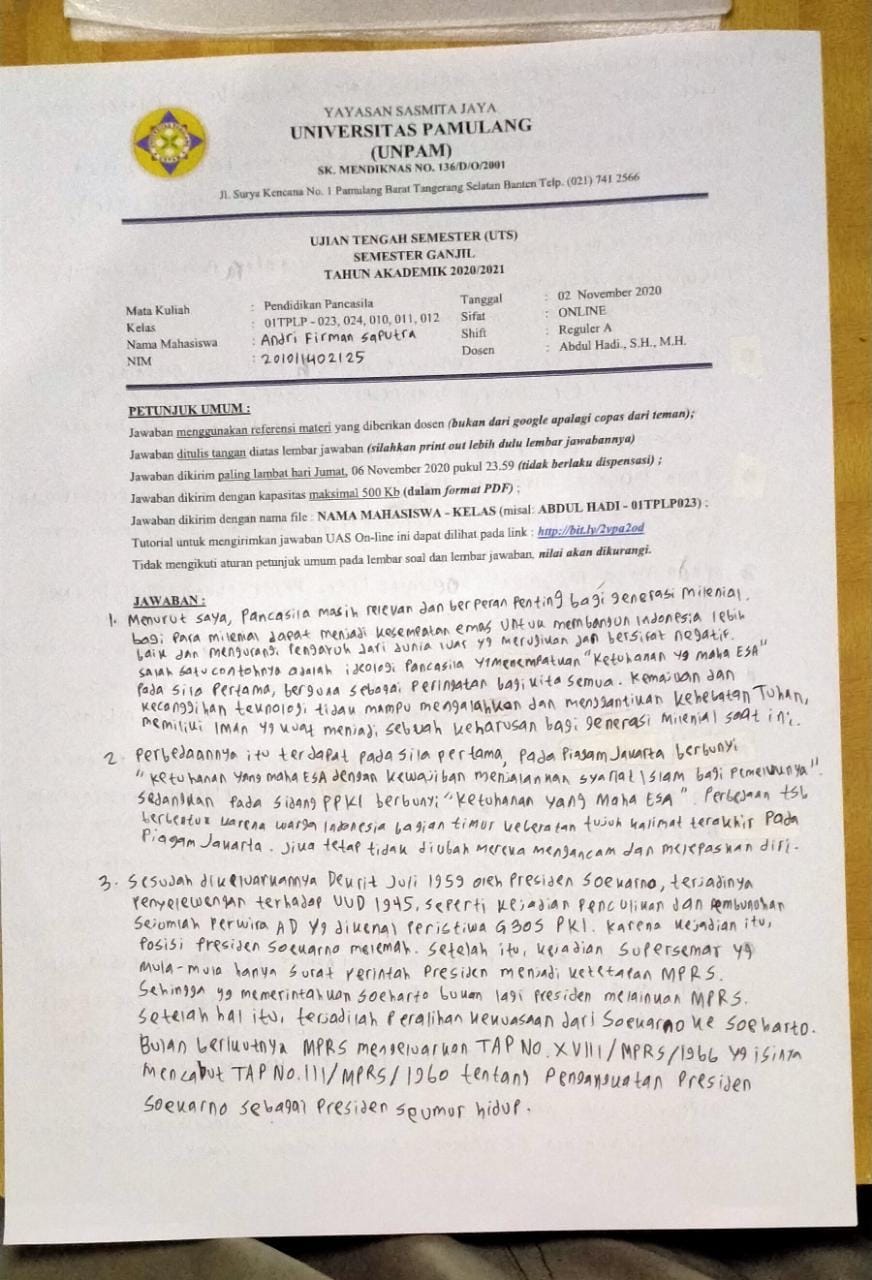 YAYASAN SASMITA JAYA
UNIVERSITAS PAMULANG
(UNPAM)
SK. MENDIKNAS NO. 136/D/O/2001
Jl. Surya Kencana No. 1 Pamulang Barat Tangerang Selatan Banten Telp. (021) 741 2566
UJIAN TENGAH SEMESTER (UTS)
SEMESTER GANJIL
TAHUN AKADEMIK 2020/2021
Mata Kuliah : Pendidikan Pancasila
Kelas : 01TPLP - 023, 024, 010, 011, 012
Nama Mahasiswa : Andri Firman Saputra
NIM : 201011402125
Tanggal : 02 November 2020
Sifat : ONLINE
Shift : Reguler A
Dosen : Abdul Hadi., S.H., M.H.
PETUNJUK UMUM :
Jawaban menggunakan referensi materi yang diberikan dosen (bukan dari google apalagi copas dari teman);
Jawaban ditulis tangan diatas lembar jawaban (silahkan print out lebih dulu lembar jawabannya)
Jawaban dikirim paling lambat hari Jumat, 06 November 2020 pukul 23.59 (tidak berlaku dispensasi) ;
Jawaban dikirim dengan kapasitas maksimal 500 Kb (dalam format PDF) ;
Jawaban dikirim dengan nama file : NAMA MAHASISWA - KELAS (misal: ABDUL HADI - 01TPLP023) ;
Tutorial untuk mengirimkan jawaban UAS On-line ini dapat dilihat pada link : http://bit.ly/2vpa2od
Tidak mengikuti aturan petunjuk umum pada lembar soal dan lembar jawaban, nilai akan dikurangi.
JAWABAN :
1. Menurut saya, Pancasila masih relevan dan berperan penting bagi generasi milenial.
bagi para milenial dapat menjadi kesempatan emas untuk membangun Indonesia lebih
baik dan mengurangi pengaruh dari dunia luar yg merugikan dan bersifat negatif.
salah satu contohnya adalah ideologi Pancasila yg menempatkan "Ketuhanan yg maha ESA"
Pada sila Pertama, berguna sebagai Peringatan bagi kita semua. Kemajuan dan
kecanggihan teknologi tidak mampu mengalahkan dan menggantikan kehebatan Tuhan,
memiliki Iman yg kuat menjadi sebuah keharusan bagi generasi milenial saat ini.
2. Perbedaannya itu terdapat pada sila pertama, Pada Piagam Jakarta berbunyi
"Ketuhanan yang maha ESA dengan kewajiban menjalankan syariat Islam bagi Pemeluknya".
Sedangkan pada sidang PPKI berbunyi "Ketuhanan yang Maha ESA". Perbedaan tsb
berbentuk karena warga Indonesia bagian timur keberatan tujuh kalimat terakhir pada
Piagam Jakarta. Jika tetap tidak diubah mereka mengancam dan melepaskan diri.
3. Sesudah dikeluarkannya Dekrit Juli 1959 oleh Presiden Soekarno, terjadinya
Penyelewengan terhadap UUD 1945. seperti kejadian Penculikan dan Pembunuhan
Sejumlah Perwira AD yg dikenal Peristiwa G30S PKI. Karena kejadian itu,
Posisi Presiden Soekarno melemah. Setelah itu, kejadian Supersemar yg
mula-mula hanya surat perintah Presiden menjadi ketetapan MPRS.
Sehingga yg memerintahkan Soeharto bukan lagi presiden melainkan MPRS.
Setelah hal itu, terjadilah Peralihan kekuasaan dari Soekarno ke Soeharto.
Bulan berikutnya MPRS mengeluarkan TAP NO. XVIII/MPRS/1966 yg isinya
mencabut TAP NO. III/MPRS/1960 tentang Pengangkatan Presiden
Soekarno sebagai Presiden seumur hidup.